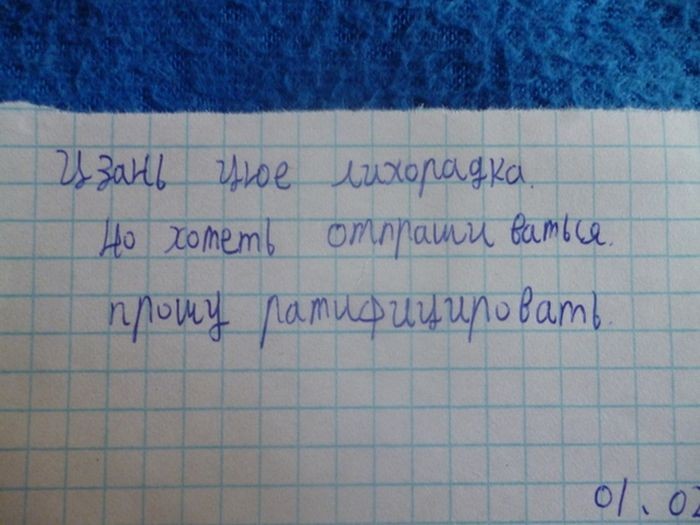 Цзань цюе лихорадка.
До хотеть отпраши ваться.
прошу ратифицировать.
01.03